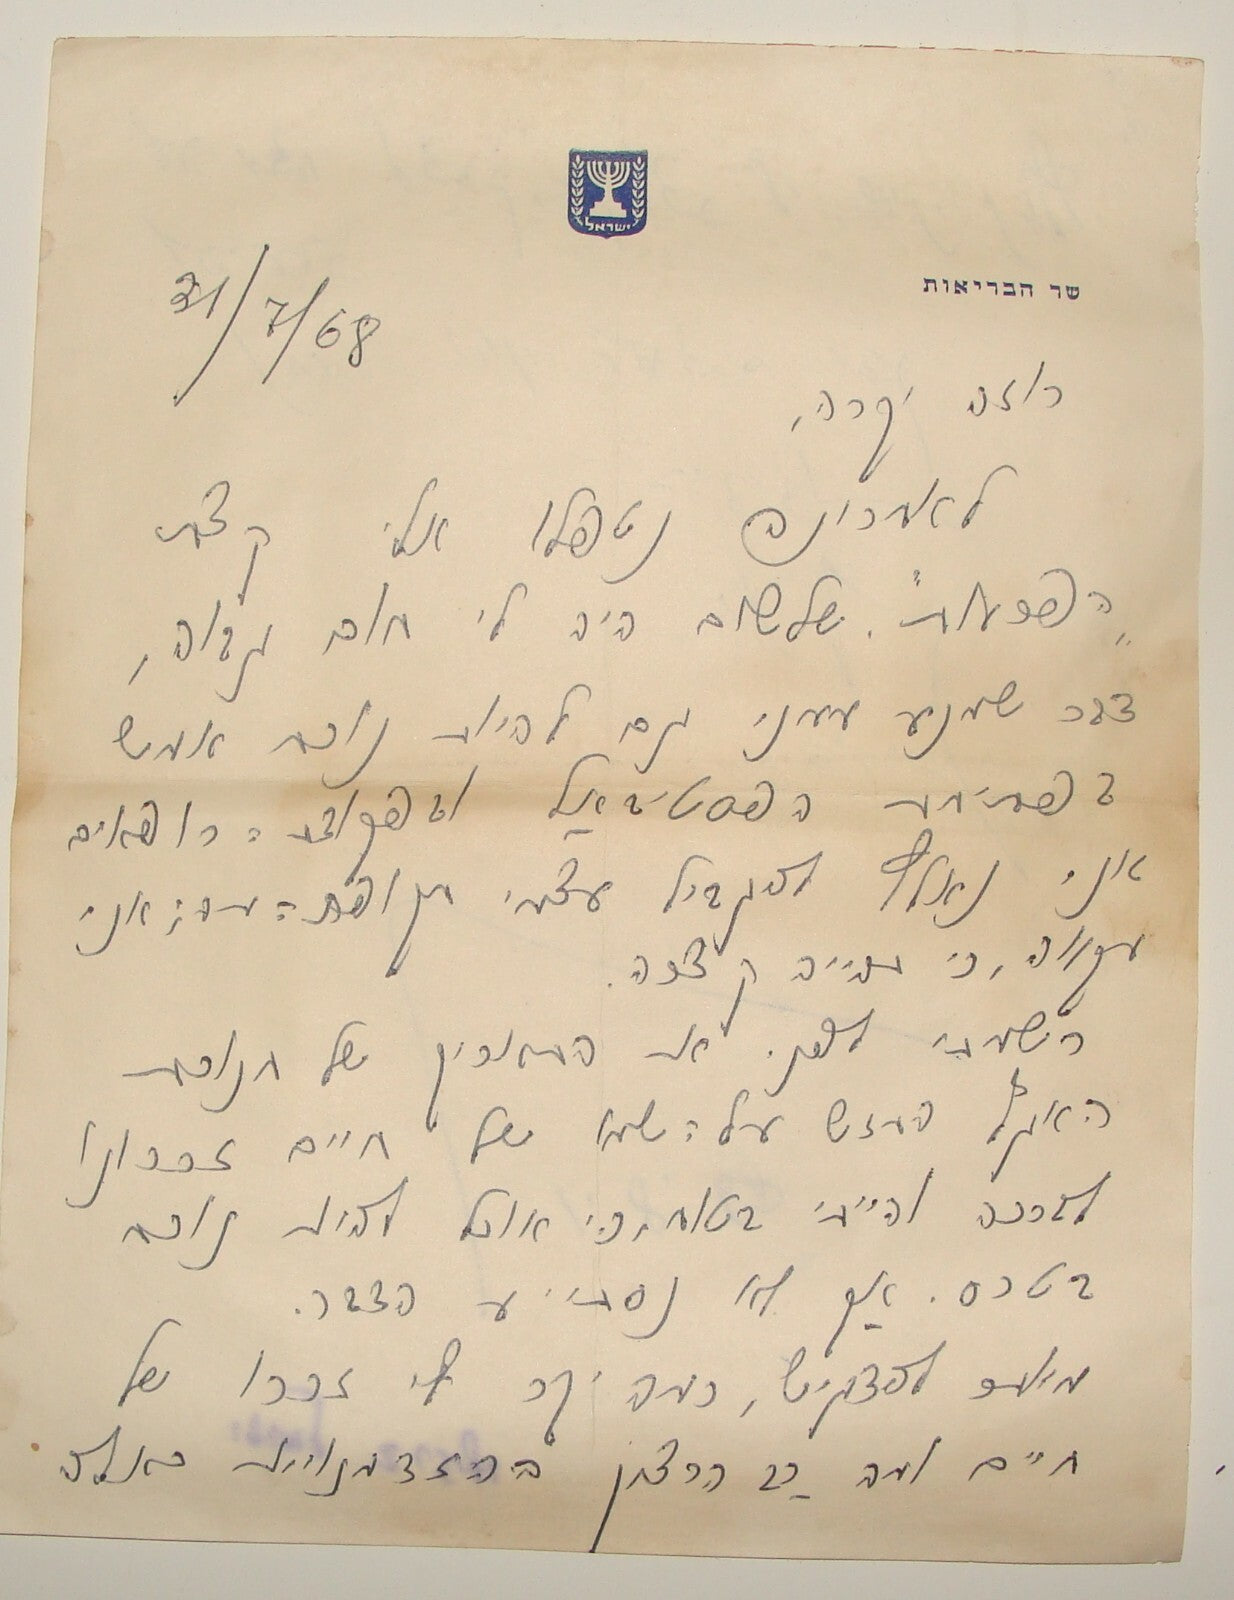 ישראל
שר הבריאות
31/7/68
רוזה יקרה,
לאחרונה נטפלו אלי קצת
"הפרעות". שלשום היה לי חום גבוה,
דבר שמנע ממני גם להיות נוכח אמש
בפתיחת הפסטיבאל ובפקודת הרופאים
אני נאלץ להגביל עצמי תקופת-מה; אני
מקווה, כי תהייה קצרה.
רשמתי לפני את התאריך של חנוכת
האגף החדש על-שמו של חיים זכרונו
לברכה והייתי בטוח, כי אוכל להיות נוכח
בטכס. אך לא נסתייע הדבר.
מיותר להדגיש, כמה יקר לי זכרו של
חיים ומה רב הרצון בהזדמנויות כאלה